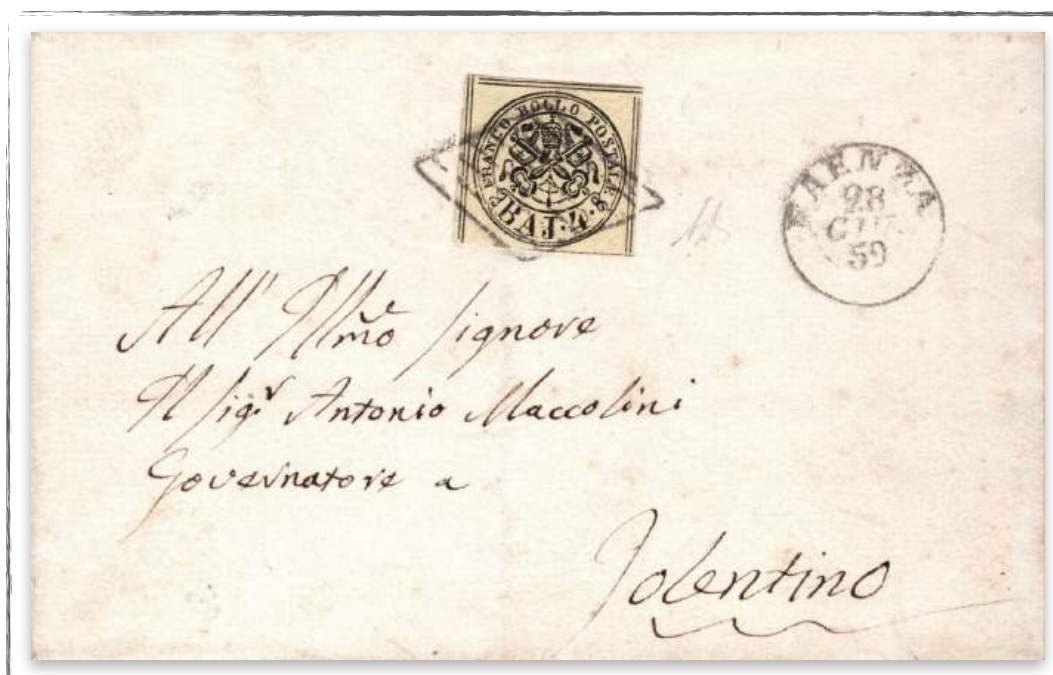 FRANCO BOLLO POSTALE
BAJ. 4.
FAENZA
28
GIU.
59
All' Illmo Signore
Il Sigr Antonio Maccolini
Governatore a
Tolentino